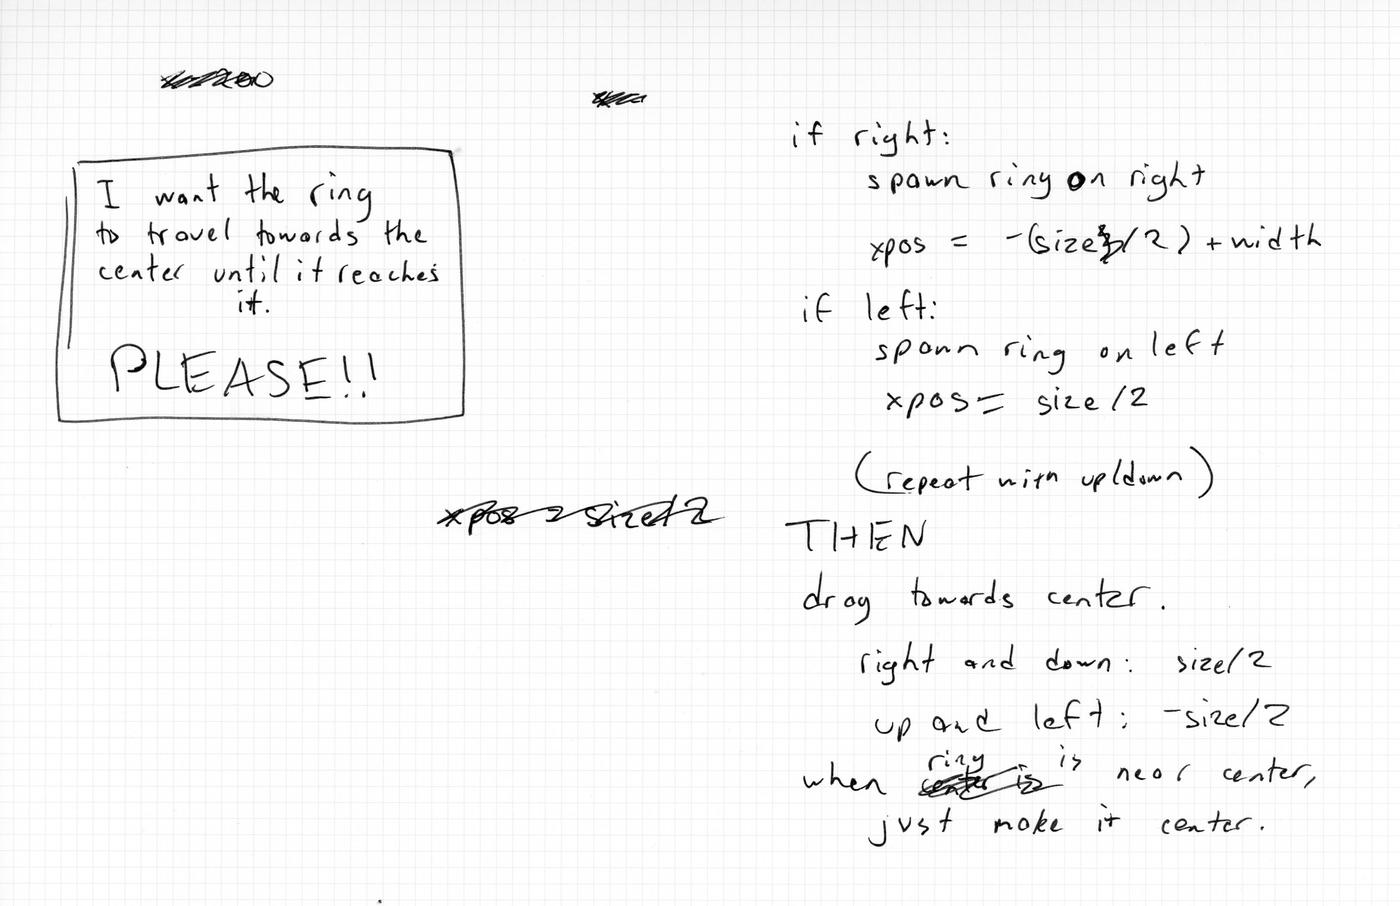 I want the ring
to travel towards the
center until it reaches
it.
PLEASE!!
xpos = size/2
if right:
spawn ring on right
xpos = -(size/2) + width
if left:
spawn ring on left
xpos = size/2
(repeat with up/down)
THEN
drag towards center.
right and down: size/2
up and left: -size/2
when ring is near center,
just make it center.